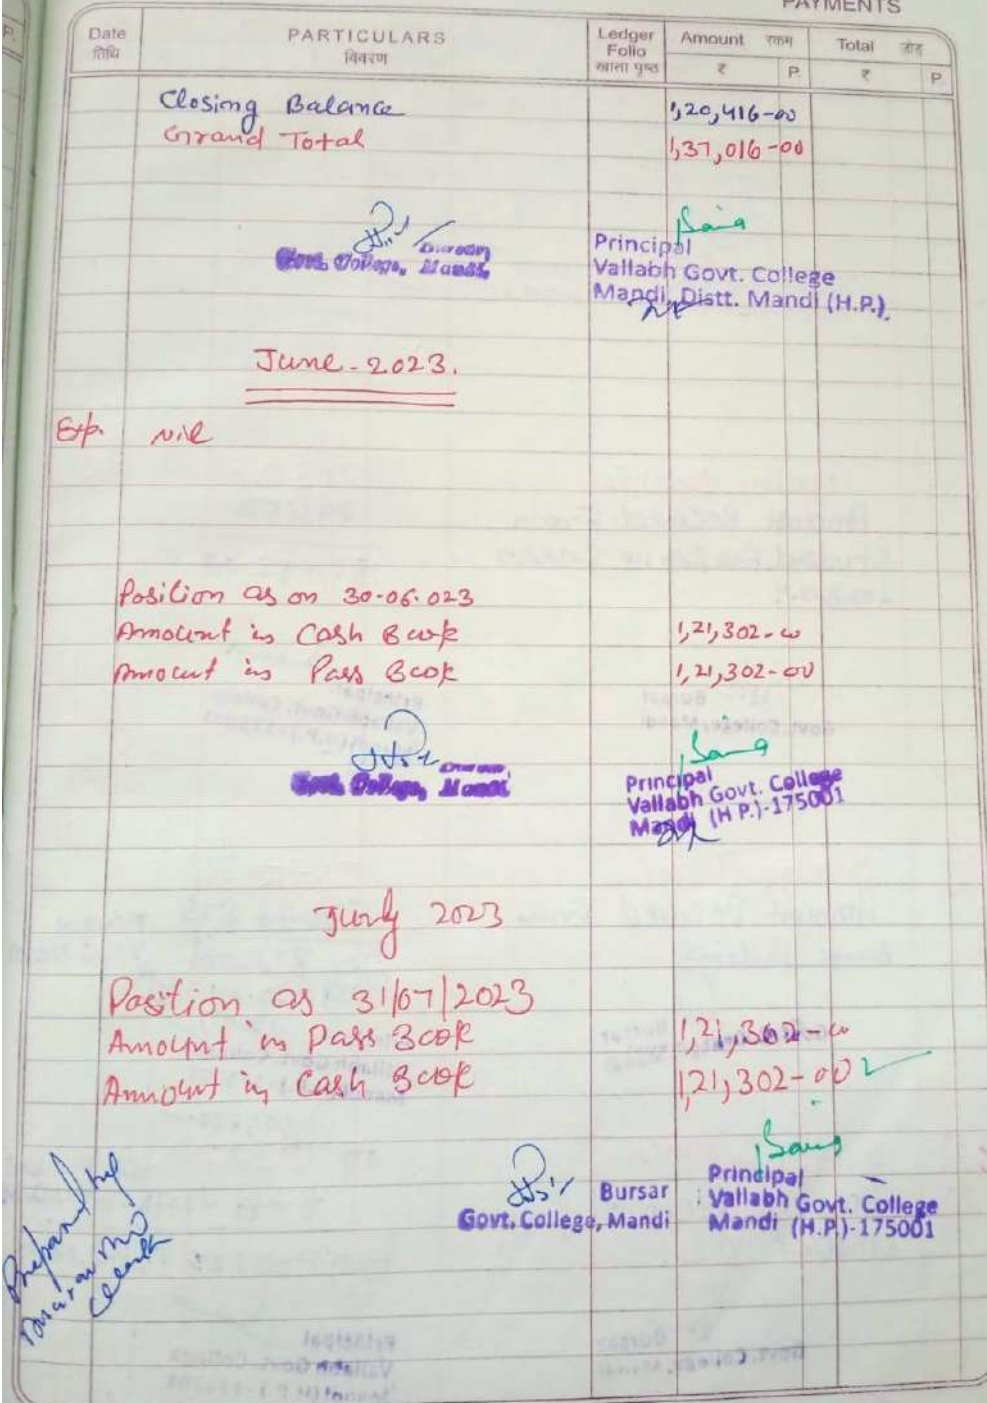 PAYMENTS
P.
Date
तिथि
PARTICULARS
विवरण
Ledger
Folio
खाता पृष्ठ
Amount रकम
₹ P.
Total जोड़
₹ P.
Closing Balance 1,20,416-00
Grand Total 1,37,016-00
Bursar
Govt. College, Mandi
Principal
Vallabh Govt. College
Mandi, Distt. Mandi (H.P.)
June-2023.
Exp. Nil
Position as on 30.06.023
Amount in Cash Book 1,21,302-00
Amount in Pass Book 1,21,302-00
Bursar
Govt. College, Mandi
Principal
Vallabh Govt. College
Mandi (H P.)-175001
July 2023
Position as 31/07/2023
Amount in Pass Book 1,21,302-00
Amount in Cash Book 1,21,302-00
Bursar
Govt. College, Mandi
Principal
Vallabh Govt. College
Mandi (H.P.)-175001
Clerk